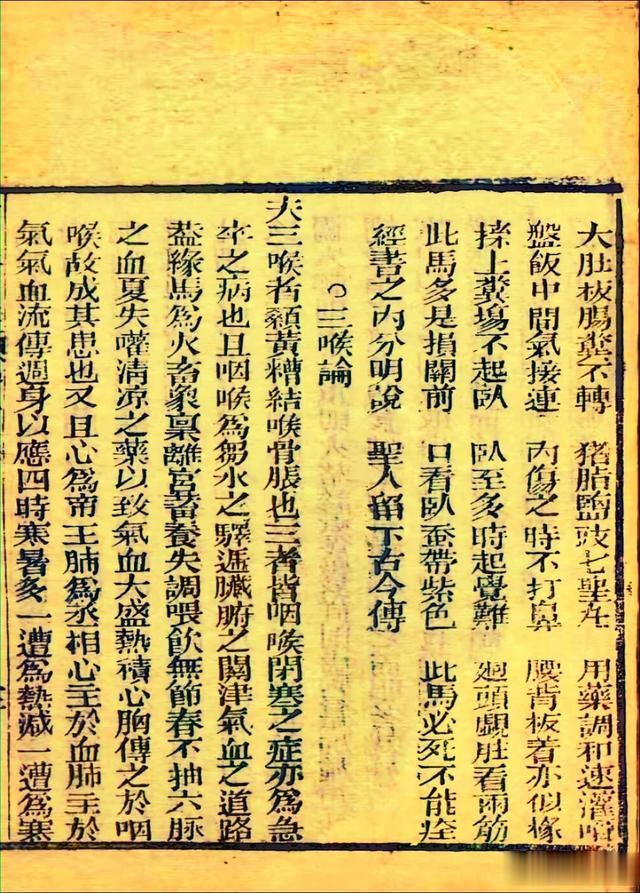 大肚板腸糞不轉 猪脂鹽豉七聖丸 用藥調和速灌嚥
盤飯中間氣接連 內傷之時不打鼻 腰背板着亦似椽
搽上糞塲不起臥 臥至多時起覺難 廻頭覷肚看兩筋
此馬多是損關前 口看臥蚕帶紫色 此馬必死不能痊
經書之內分明說 聖人留下古今傳
○三喉論
夫三喉者顙黃糟結喉骨脹也三者皆咽喉閉塞之症亦為急
卒之病也且咽喉為芻水之驛遞臟腑之關津氣血之道路
葢緣馬為火畜象稟離宮暑養失調喂飲無節春不抽六脉
之血夏失嚾清凉之藥以致氣血大盛熱積心胸傳之於咽
喉故成其患也又且心為帝王肺為丞相心主於血肺主於
氣氣血流傳週身以應四時寒暑多一遭為熱減一遭為寒